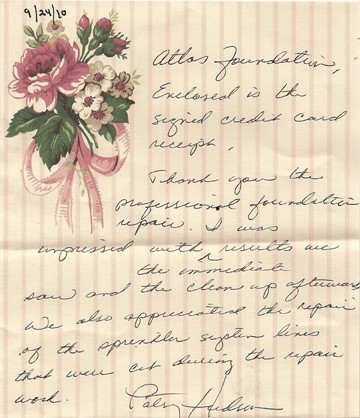 9/24/10
Atlas Foundation,
Enclosed is the
signed credit card
receipt.
Thank you the
professional foundation
repair. I was
impressed with ^ results we
the immediate
saw and the clean up afterwards
We also appreciated the repair
of the sprinkler system lines
that were cut during the repair
work. Patsy Hudson